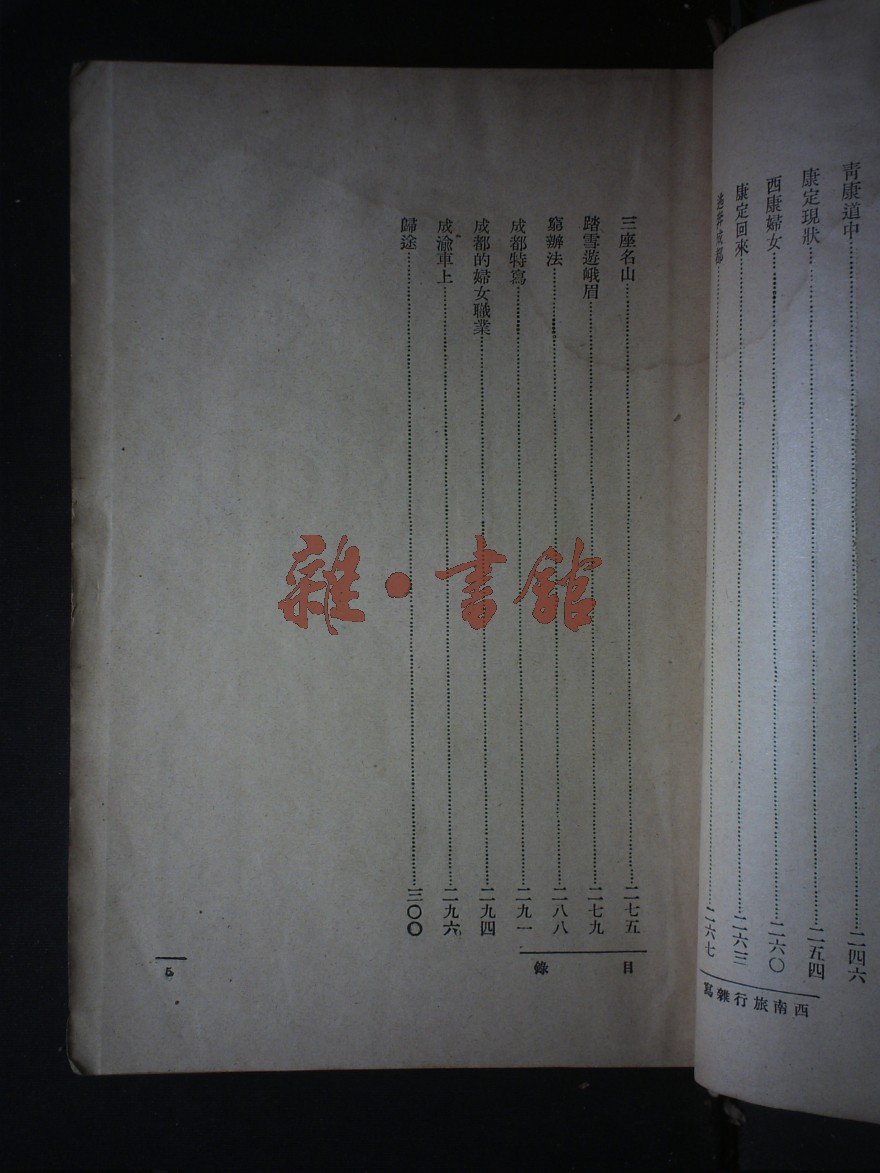 青康道中……二四六
康定現狀……二五四
西康婦女……二六〇
康定回來……二六三
逃奔成都……二六七
西南旅行雜寫
三座名山……二七五
踏雪遊峨眉……二七九
窮辦法……二八八
成都特寫……二九一
成都的婦女職業……二九四
成渝車上……二九六
歸途……三〇〇
目錄
5
雜·書館